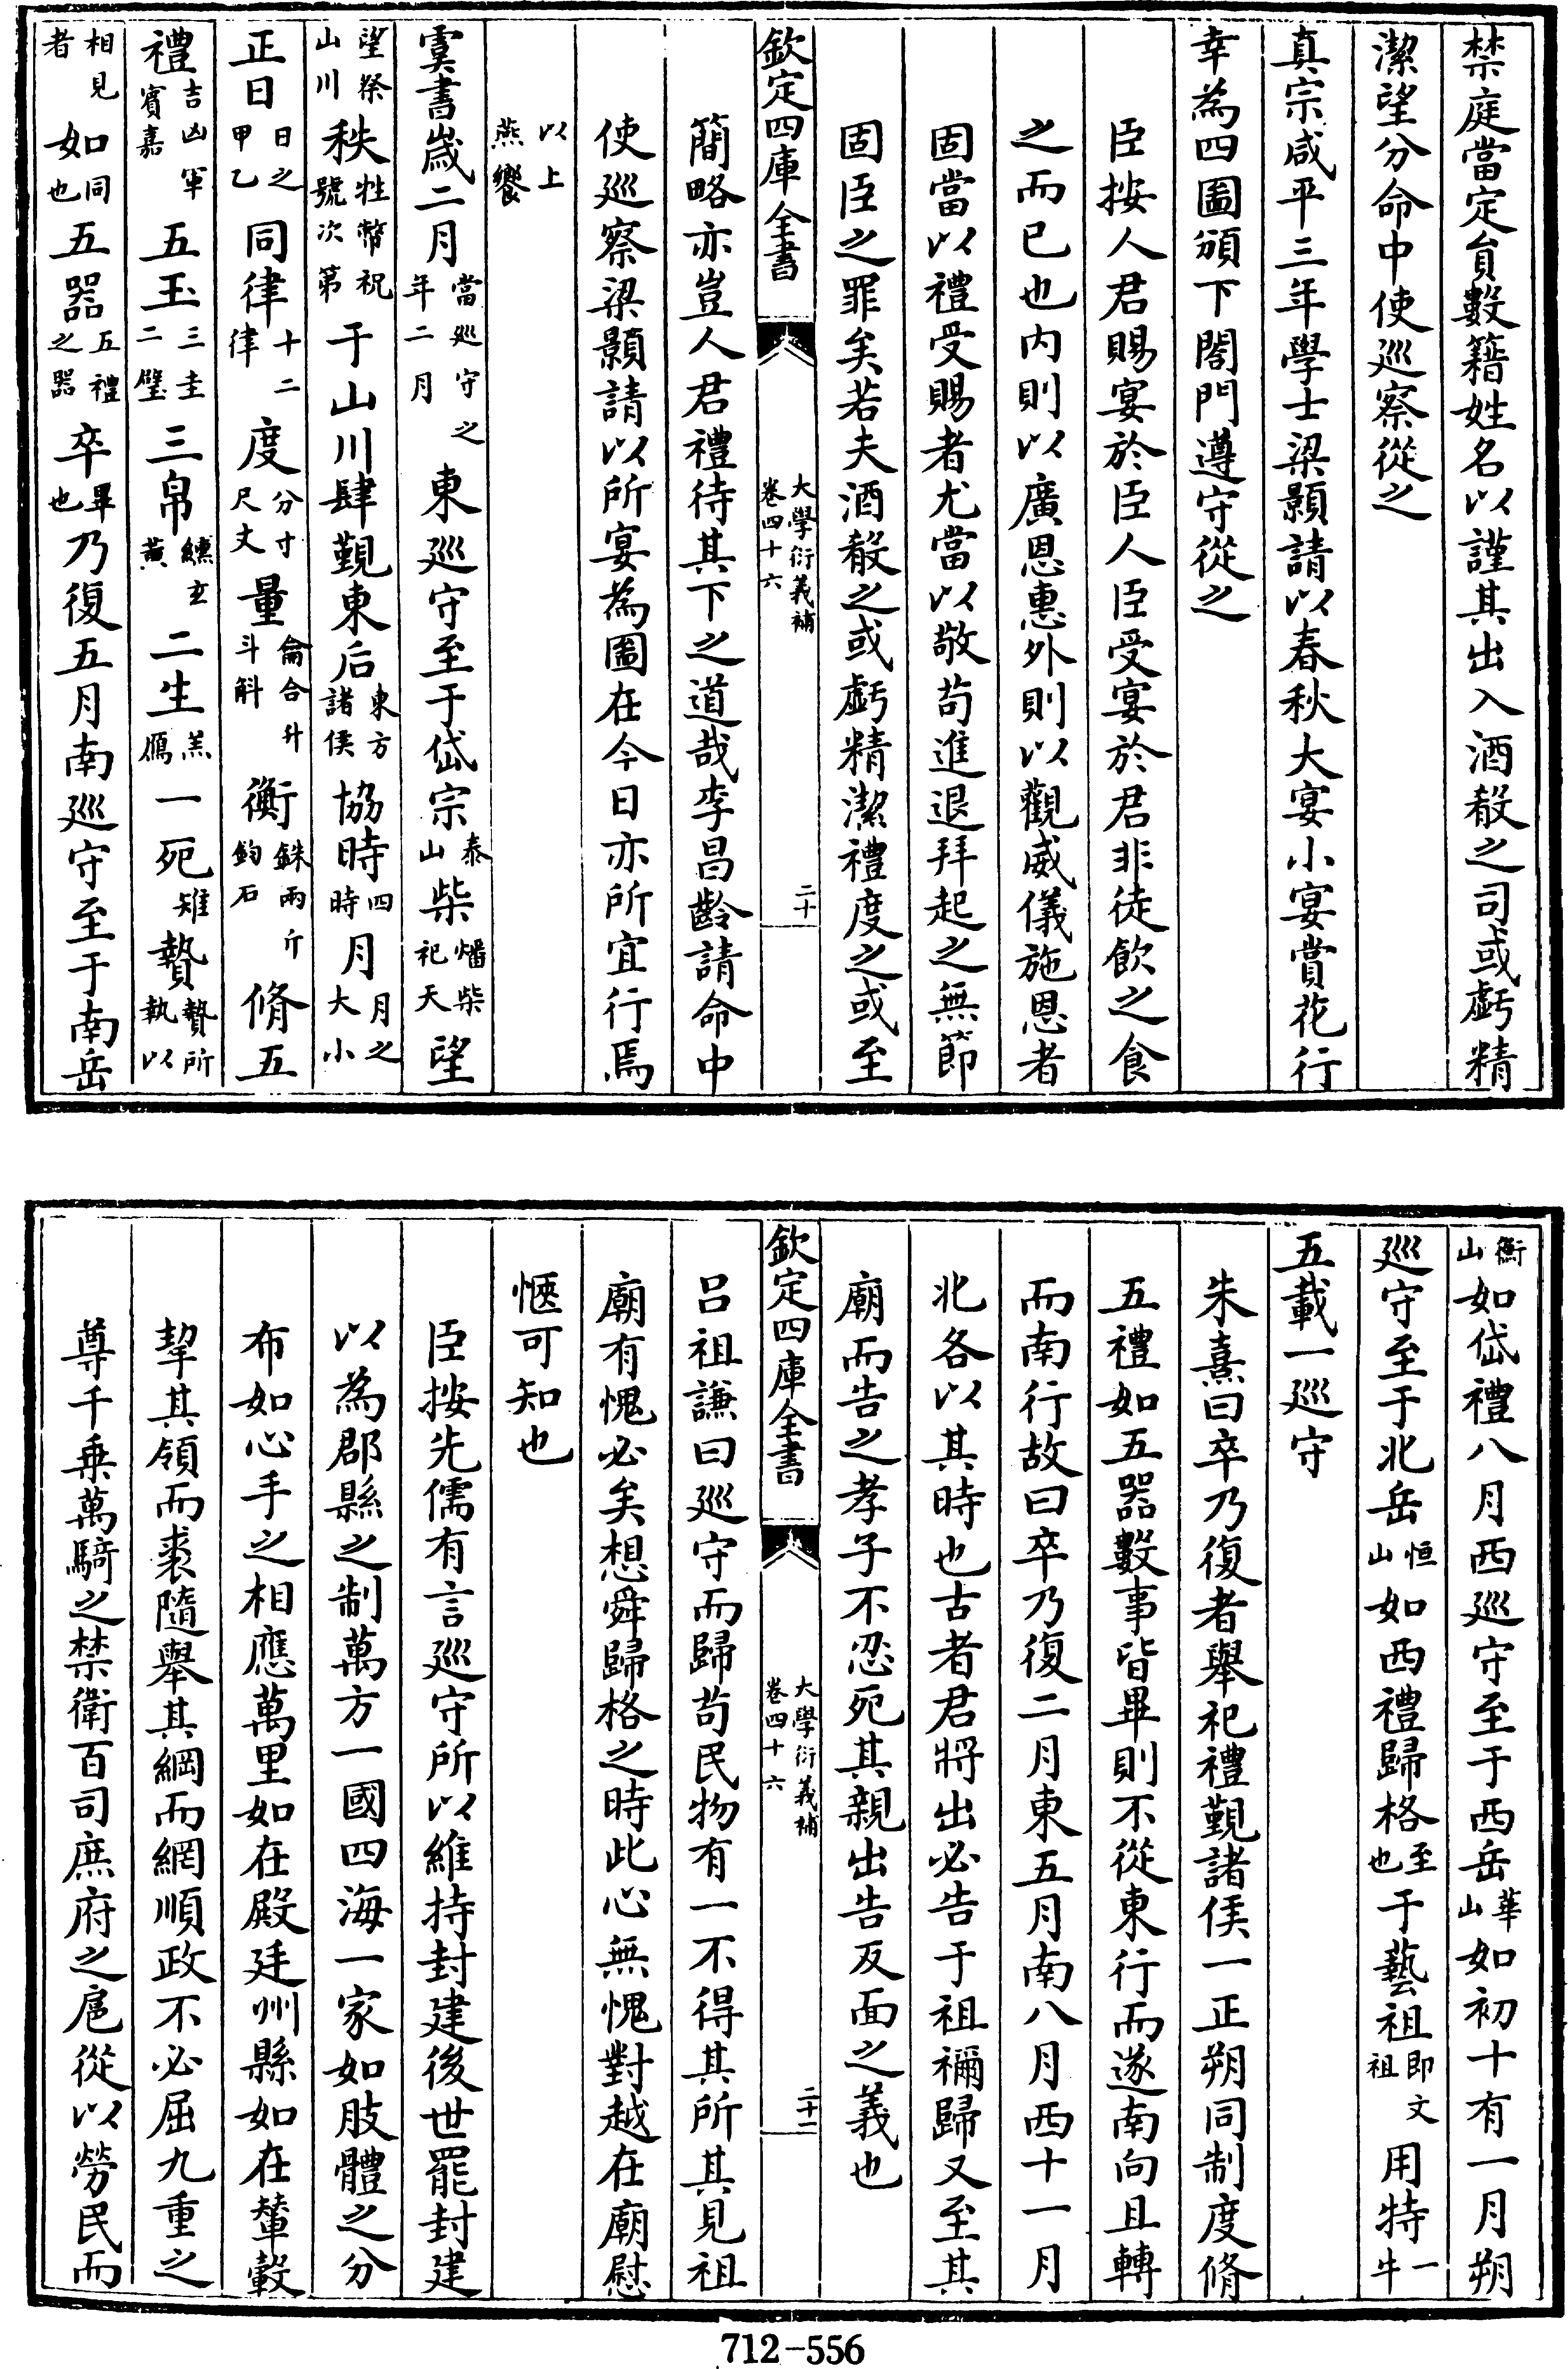 禁庭當定員數籍姓名以謹其出入酒殽之司或虧精
潔望分命中使巡察從之
真宗咸平三年學士梁顥請以春秋大宴小宴賞花行
幸為四圖頒下閤門遵守從之
臣按人君賜宴於臣人臣受宴於君非徒飲之食
之而已也内則以廣恩惠外則以觀威儀施恩者
固當以禮受賜者尤當以敬苟進退拜起之無節
固臣之罪矣若夫酒殽之或虧精潔禮度之或至
欽定四庫全書 大學衍義補卷四十六 二十
簡略亦豈人君禮待其下之道哉李昌齡請命中
使巡察梁顥請以所宴為圖在今日亦所宜行焉
以上燕饗
虞書歲二月當巡守之年二月東巡守至于岱宗泰山柴燔柴祀天望
望祭山川秩牲幣祝號次第于山川肆覲東后東方諸侯協時四時月月之大小
正日日之甲乙同律十二律度分寸尺丈量龠合升斗斛衡銖兩斤鈞石脩五
禮吉凶軍賓嘉五玉三圭二璧三帛纁玄黄二生羔鴈一死雉贄贄所執以
相見者如同也五器五禮之器卒畢也乃復五月南巡守至于南岳
衡山如岱禮八月西巡守至于西岳華山如初十有一月朔
巡守至于北岳恒山如西禮歸格至也于藝祖即文祖用特一牛
五載一巡守
朱熹曰卒乃復者舉祀禮覲諸侯一正朔同制度脩
五禮如五器數事皆畢則不從東行而遂南向且轉
而南行故曰卒乃復二月東五月南八月西十一月
北各以其時也古者君將出必告于祖禰歸又至其
廟而告之孝子不忍死其親出告反面之義也
欽定四庫全書 大學衍義補卷四十六 二十一
呂祖謙曰巡守而歸苟民物有一不得其所其見祖
廟有愧必矣想舜歸格之時此心無愧對越在廟慰
愜可知也
臣按先儒有言巡守所以維持封建後世罷封建
以為郡縣之制萬方一國四海一家如肢體之分
布如心手之相應萬里如在殿廷州縣如在輦轂
挈其領而裘隨舉其綱而網順政不必屈九重之
尊千乗萬騎之禁衛百司庶府之扈從以勞民而
712-556